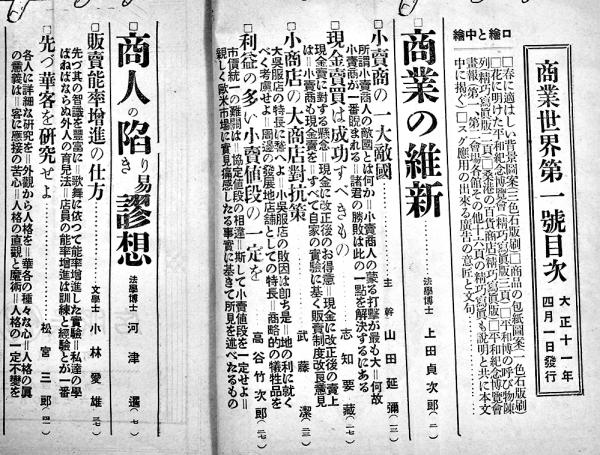 商業世界第一號目次
大正十一年
四月一日發行
口繪と中繪
□春に適はしい背景圖案(三色石版刷)□商品の包紙圖案(一色石版刷)
□花に明けた平和紀念博覽會(精巧寫眞版三頁)□平和博の呼び物陳
列(精巧寫眞版二頁)□
畫報(第一、第二會場各館其の他十六頁の精巧寫眞も說明と共に本文
中に揭ぐ)□スグ應用の出來る廣告の意匠と文句
□商業の維新
法學博士 上田貞次郎(二)
□小賣商の一大敵國
主幹 山田延彌(一三)
所謂小賣商人の敵國とは何か=小賣商人の蒙る打擊が最も大=何故
小賣商人が一番睨まれる=諸君の勝敗は此の一點を解決するにある
□現金賣買は成功すべきもの
志知要藏(一七)
現金賣に對する懸念=現金に改正後のお得意=現金に改正後の賣上
は=小賣商も現金賣を=すべて自家の實驗に基く販賣制度改良意見
□小商店の大商店對抗策
武藤潔(二三)
大吳服店の特長に鑒べて=小吳服店の敗因は卽ち是=地の利に就く
べく考慮せよ=周邊の發展地店舖としての特長=商略的の犧牲品を
□利益の多い小賣値段の一定を
高谷竹次郎(二七)
市價統一の難關は=協定値段の相違=斯して小賣値段を一定せよ=
親しく歐米市場に實見痛感したる事實に基きて所見を述べたるもの
□商人の陷り易き謬想
法學博士 河津暹(七)
□販賣能率增進の仕方
文學士 小林愛雄(三七)
先づ其の智識を豐富に=歌舞に依つて能率增進した實驗=私達の學
ばねばならぬ外人の育兒法=店員の能率增進は訓練と經驗とが一番
□先づ華客を研究せよ
松宮三郎(四一)
各人に詳細な研究を=外觀から人格を=華客の種々な心=人格の眞
の意義は=客に應接の苦心=人格の直觀と魔術=人格の一定不變を